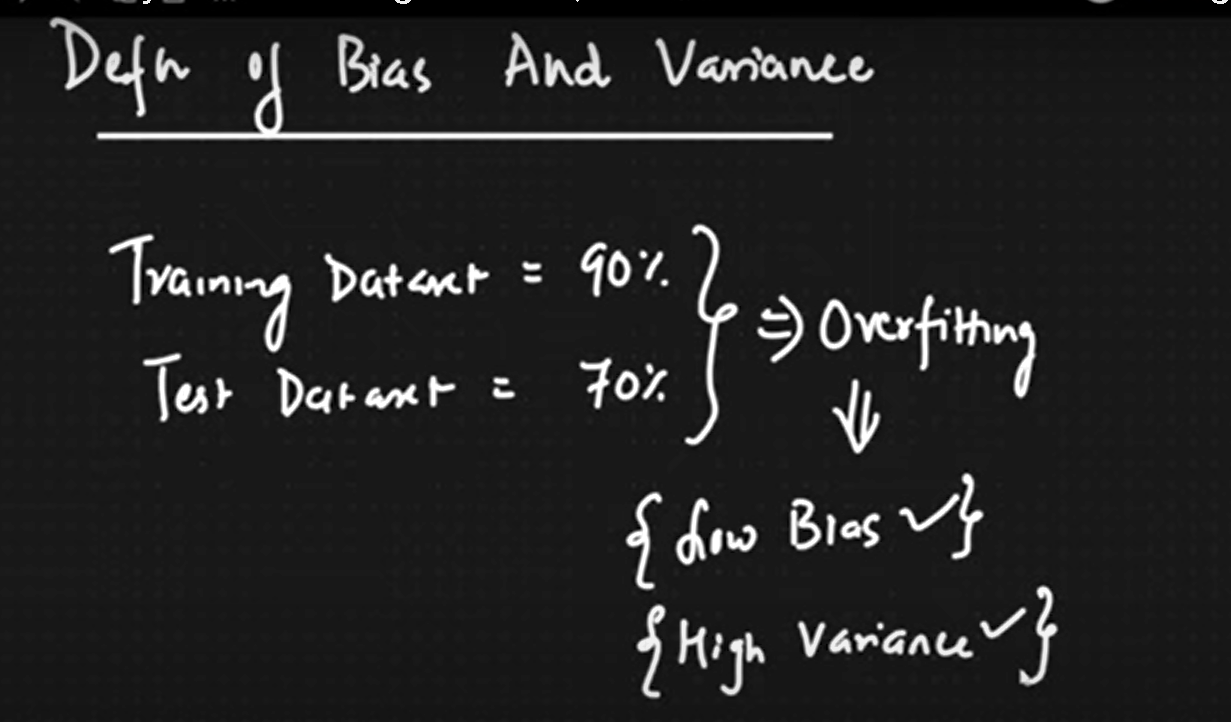 Defn of Bias And Variance
Training Dataset = 90%
Test Dataset = 70%
⇒ Overfitting
⇓
{ Low Bias ✓}
{ High Variance ✓}